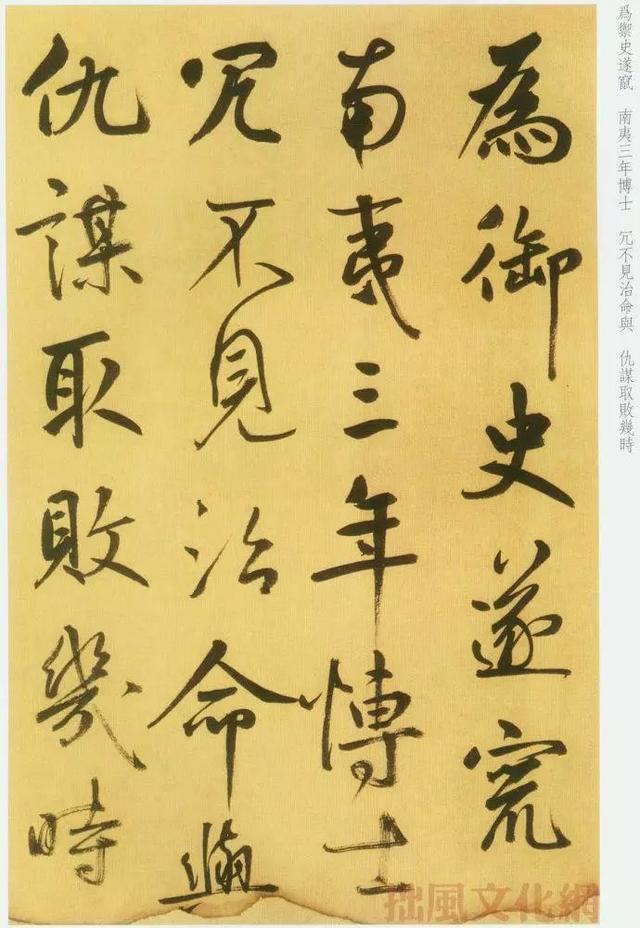 爲禦史遂竄 南夷三年博士 冗不見治命與 仇謀取敗幾時
為御史遂竄
南夷三年博士
冗不見治命與
仇謀取敗幾時
拙風文化網